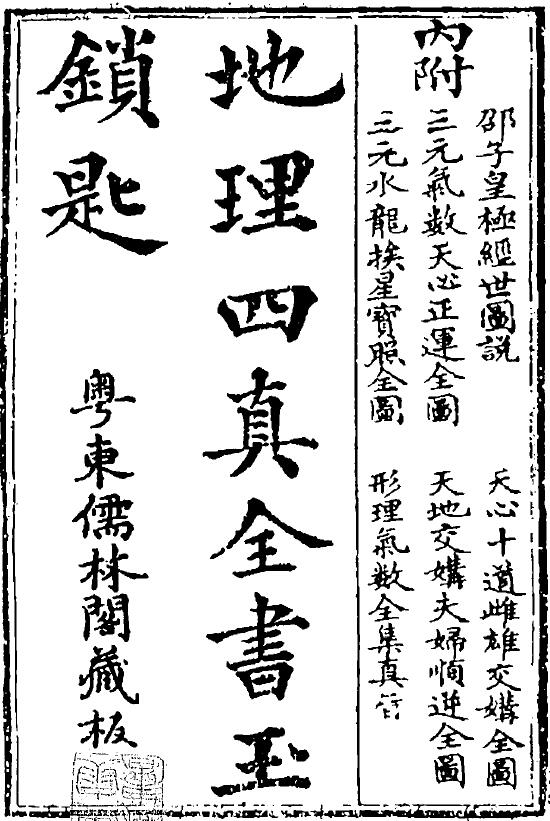 內附
邵子皇極經世圖説
天心十道雌雄交媾全圖
三元氣數天心正運全圖
天地交媾夫婦順逆全圖
三元水龍挨星寶照全圖
形理氣數全集真
地理四真全書玉
鎖匙
粵東儒林閣藏板